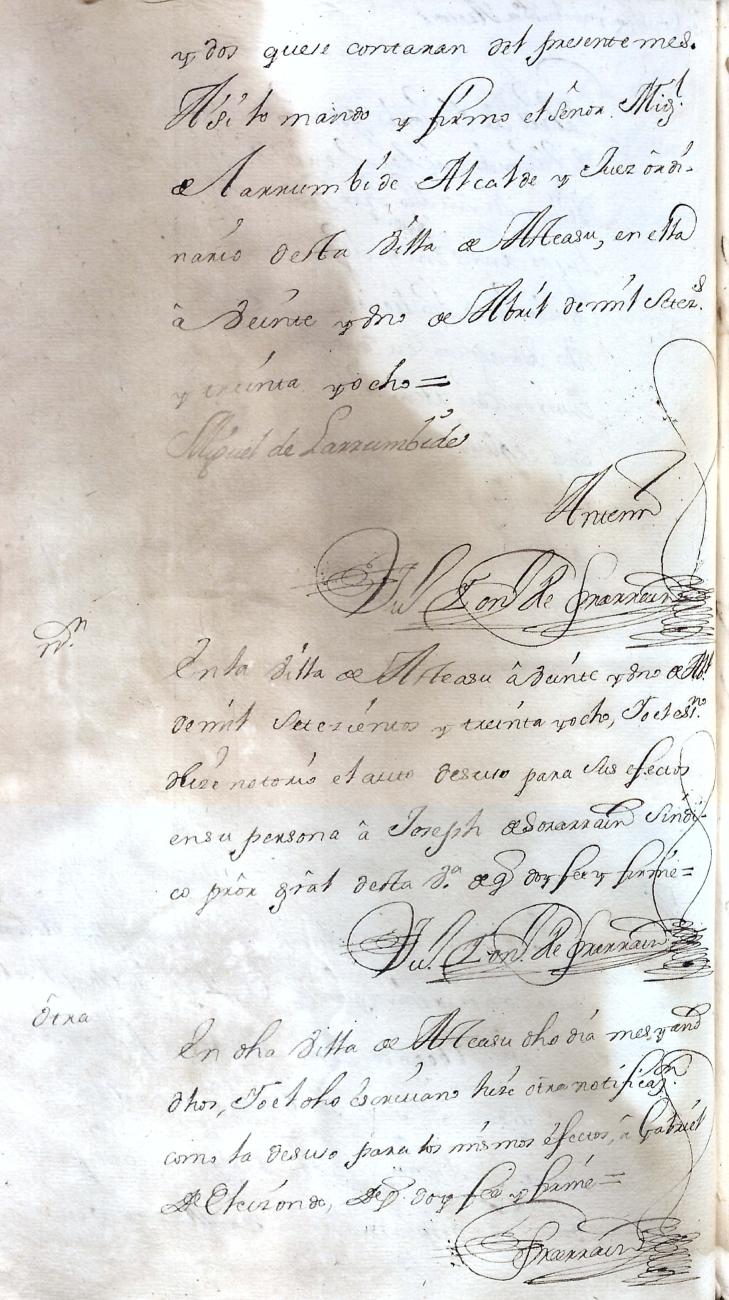 y dos que se contaran del presente mes.
Assi lo mando y firmo el señor Migl
de Larrumbide Alcalde y Juez òrdi-
nario desta Villa de Atteasu, en ella
â Veinte y Vno de Abril de mil Setezs
y treinta y ocho =
Miguel de Larrumbide
Antemi
Ju. de Ynarrain
Nn
En la Villa de Atteasu â Veinte y Vno de Abl
de mil Setezientos y treinta y ocho, Yo el essno
hize notorio el auto desuso para sus efectos
en su persona â Joseph de Sorarrain Sindi-
co prôr grâl desta Va de q doy fee y firmé =
Ju. de Ynarrain
ôtra
En dha Villa de Atteasu dho dia mes y año
dhos, Yo el dho escriuano hize otra notificazn
como la desuso para los mismos éfectos, â Gabriel
de Eleizondo, de q doy fee y firmé =
Ynarrain